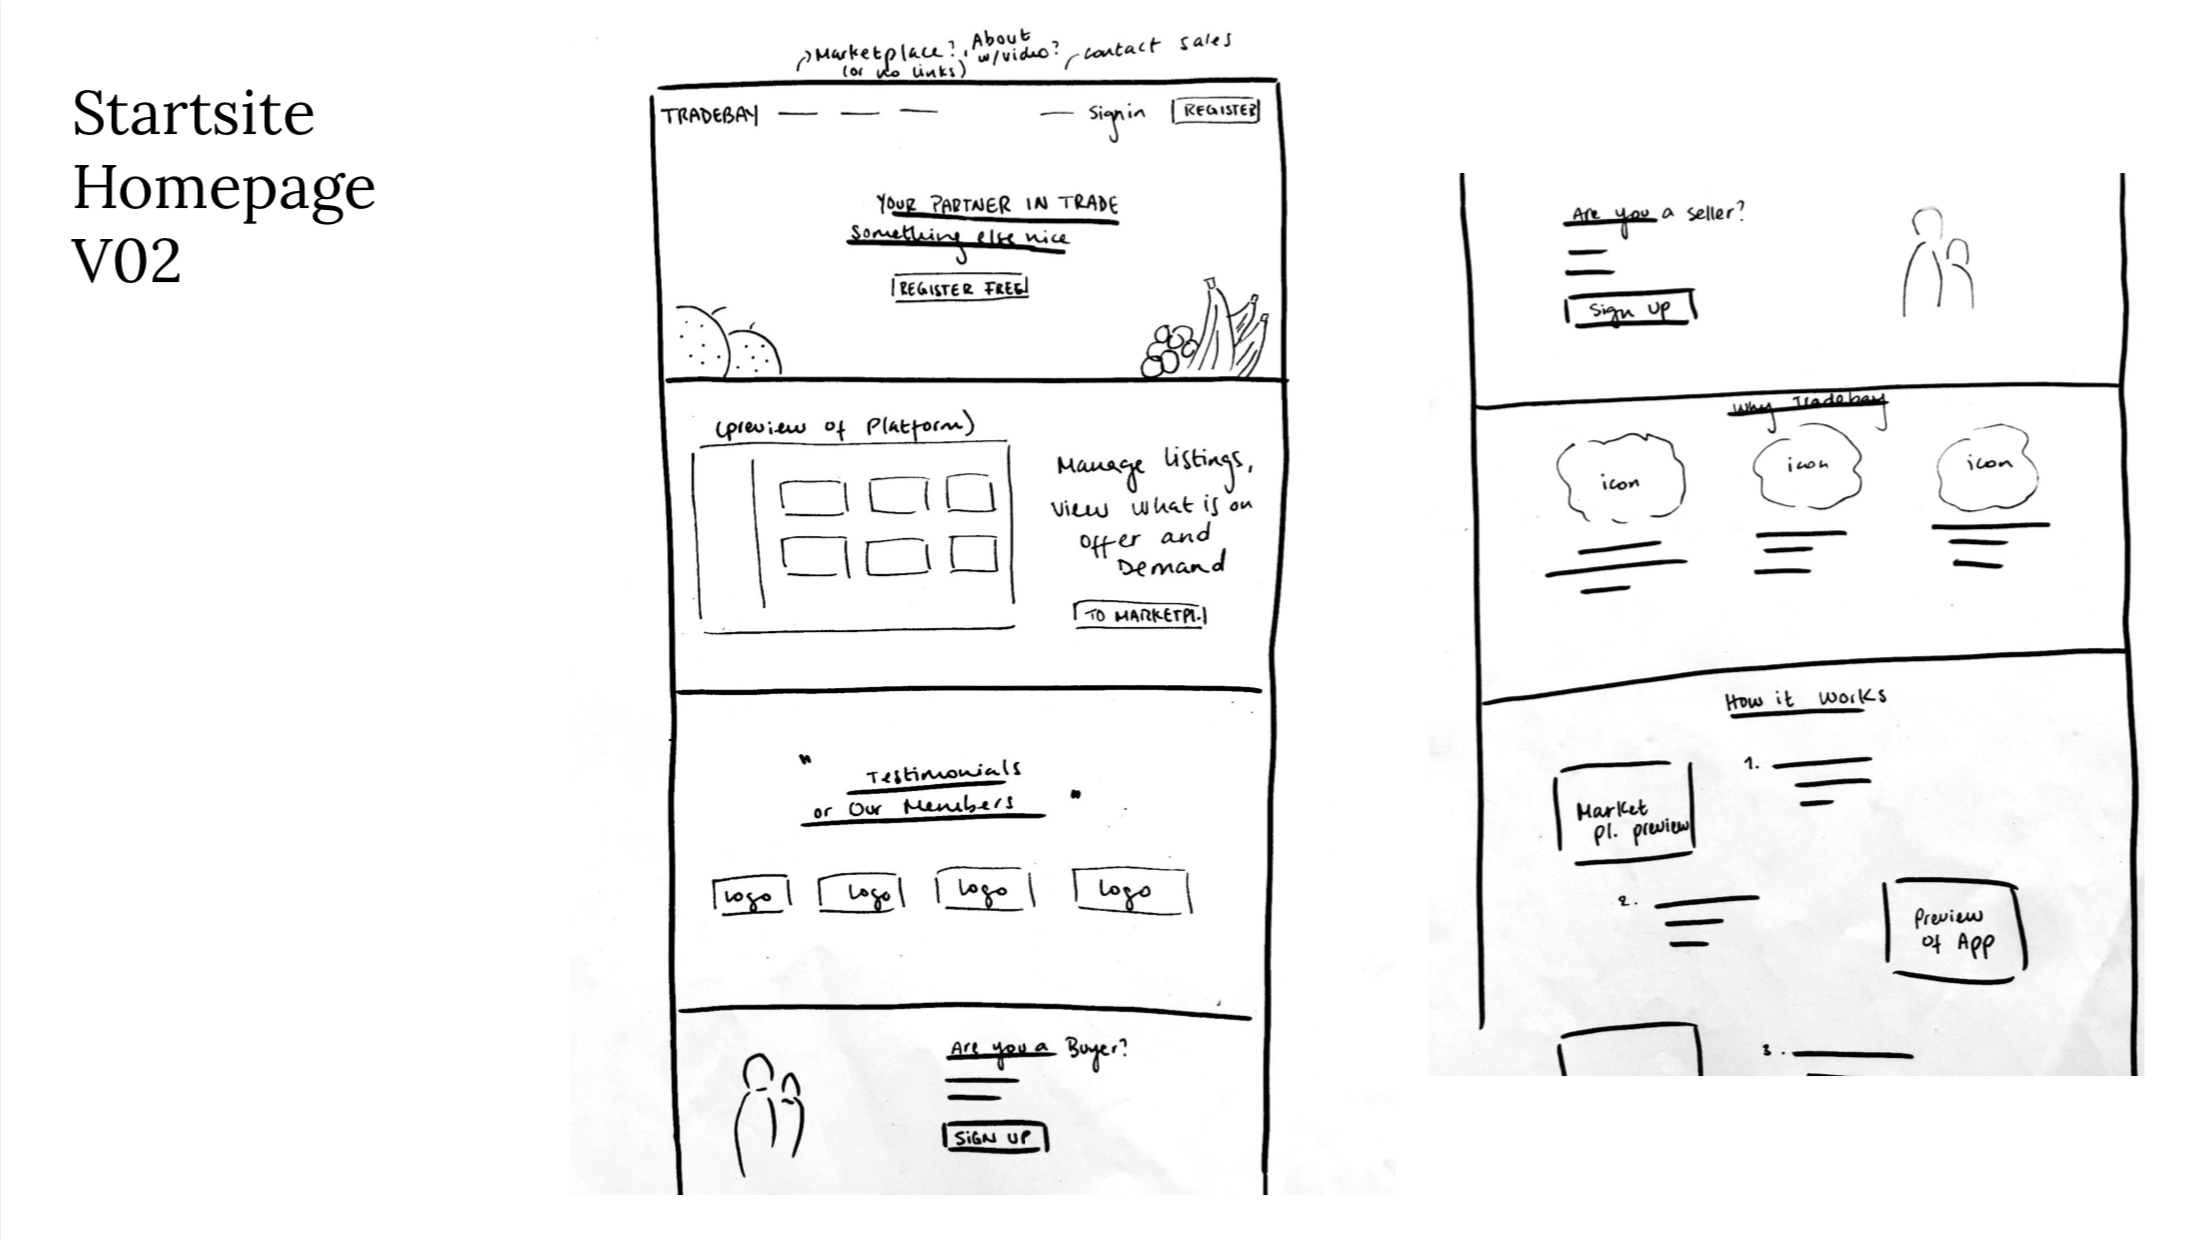 Startsite
Homepage
V02
Marketplace?, About
(or no links) w/video? contact sales
TRADEBAY
Sign in
REGISTER
YOUR PARTNER IN TRADE
Something else nice
REGISTER FREE
(preview of Platform)
Manage listings,
View what is on
offer and
Demand
TO MARKETPL.
"
Testimonials
or Our Members
"
Logo
Logo
Logo
Logo
Are you a Buyer?
SIGN UP
Are you a seller?
Sign up
Why Tradebay
icon
icon
icon
How it works
1.
Market
pl. preview
2.
Preview
of App
3.